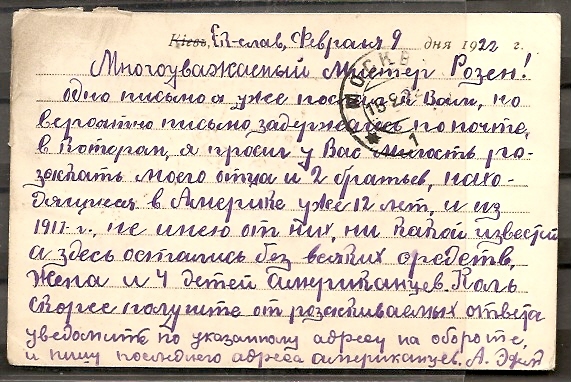 Кіевъ, Ек-слав, Февраля 9 дня 1922 г.
Многоуважаемый Мистер Розен!
МОСКВА
1
одно письмо я уже Вам, но
вероятно письмо задержалось по почте,
в котором, я просил у Вас милость ро-
зскать моего отца и 2 братьев, нахо-
дящиеся в Америке уже 12 лет, и из
1917 г., не имею от них, ни какой известий
а здесь остались без всяких средств,
жена и 4 детей американцев. Каль
скорее получите от розскиваемых ответа
уведомить по указанному адресу на обороте,
и пишу последнего адреса американцев. А.